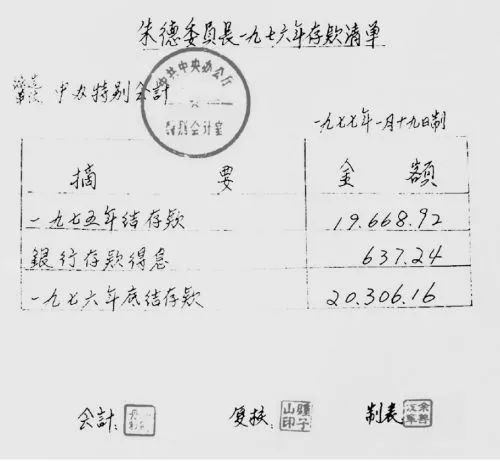 朱德委員長一九七六年存款清单
中共中央办公厅
特别会计室
中办特别会計
一九七七年一月十九日制
摘 要 金 額
一九七五年结存款 19.668.92
銀行存款得息 637.24
一九七六年底结存款 20.306.16
会計: 复核: 制表: